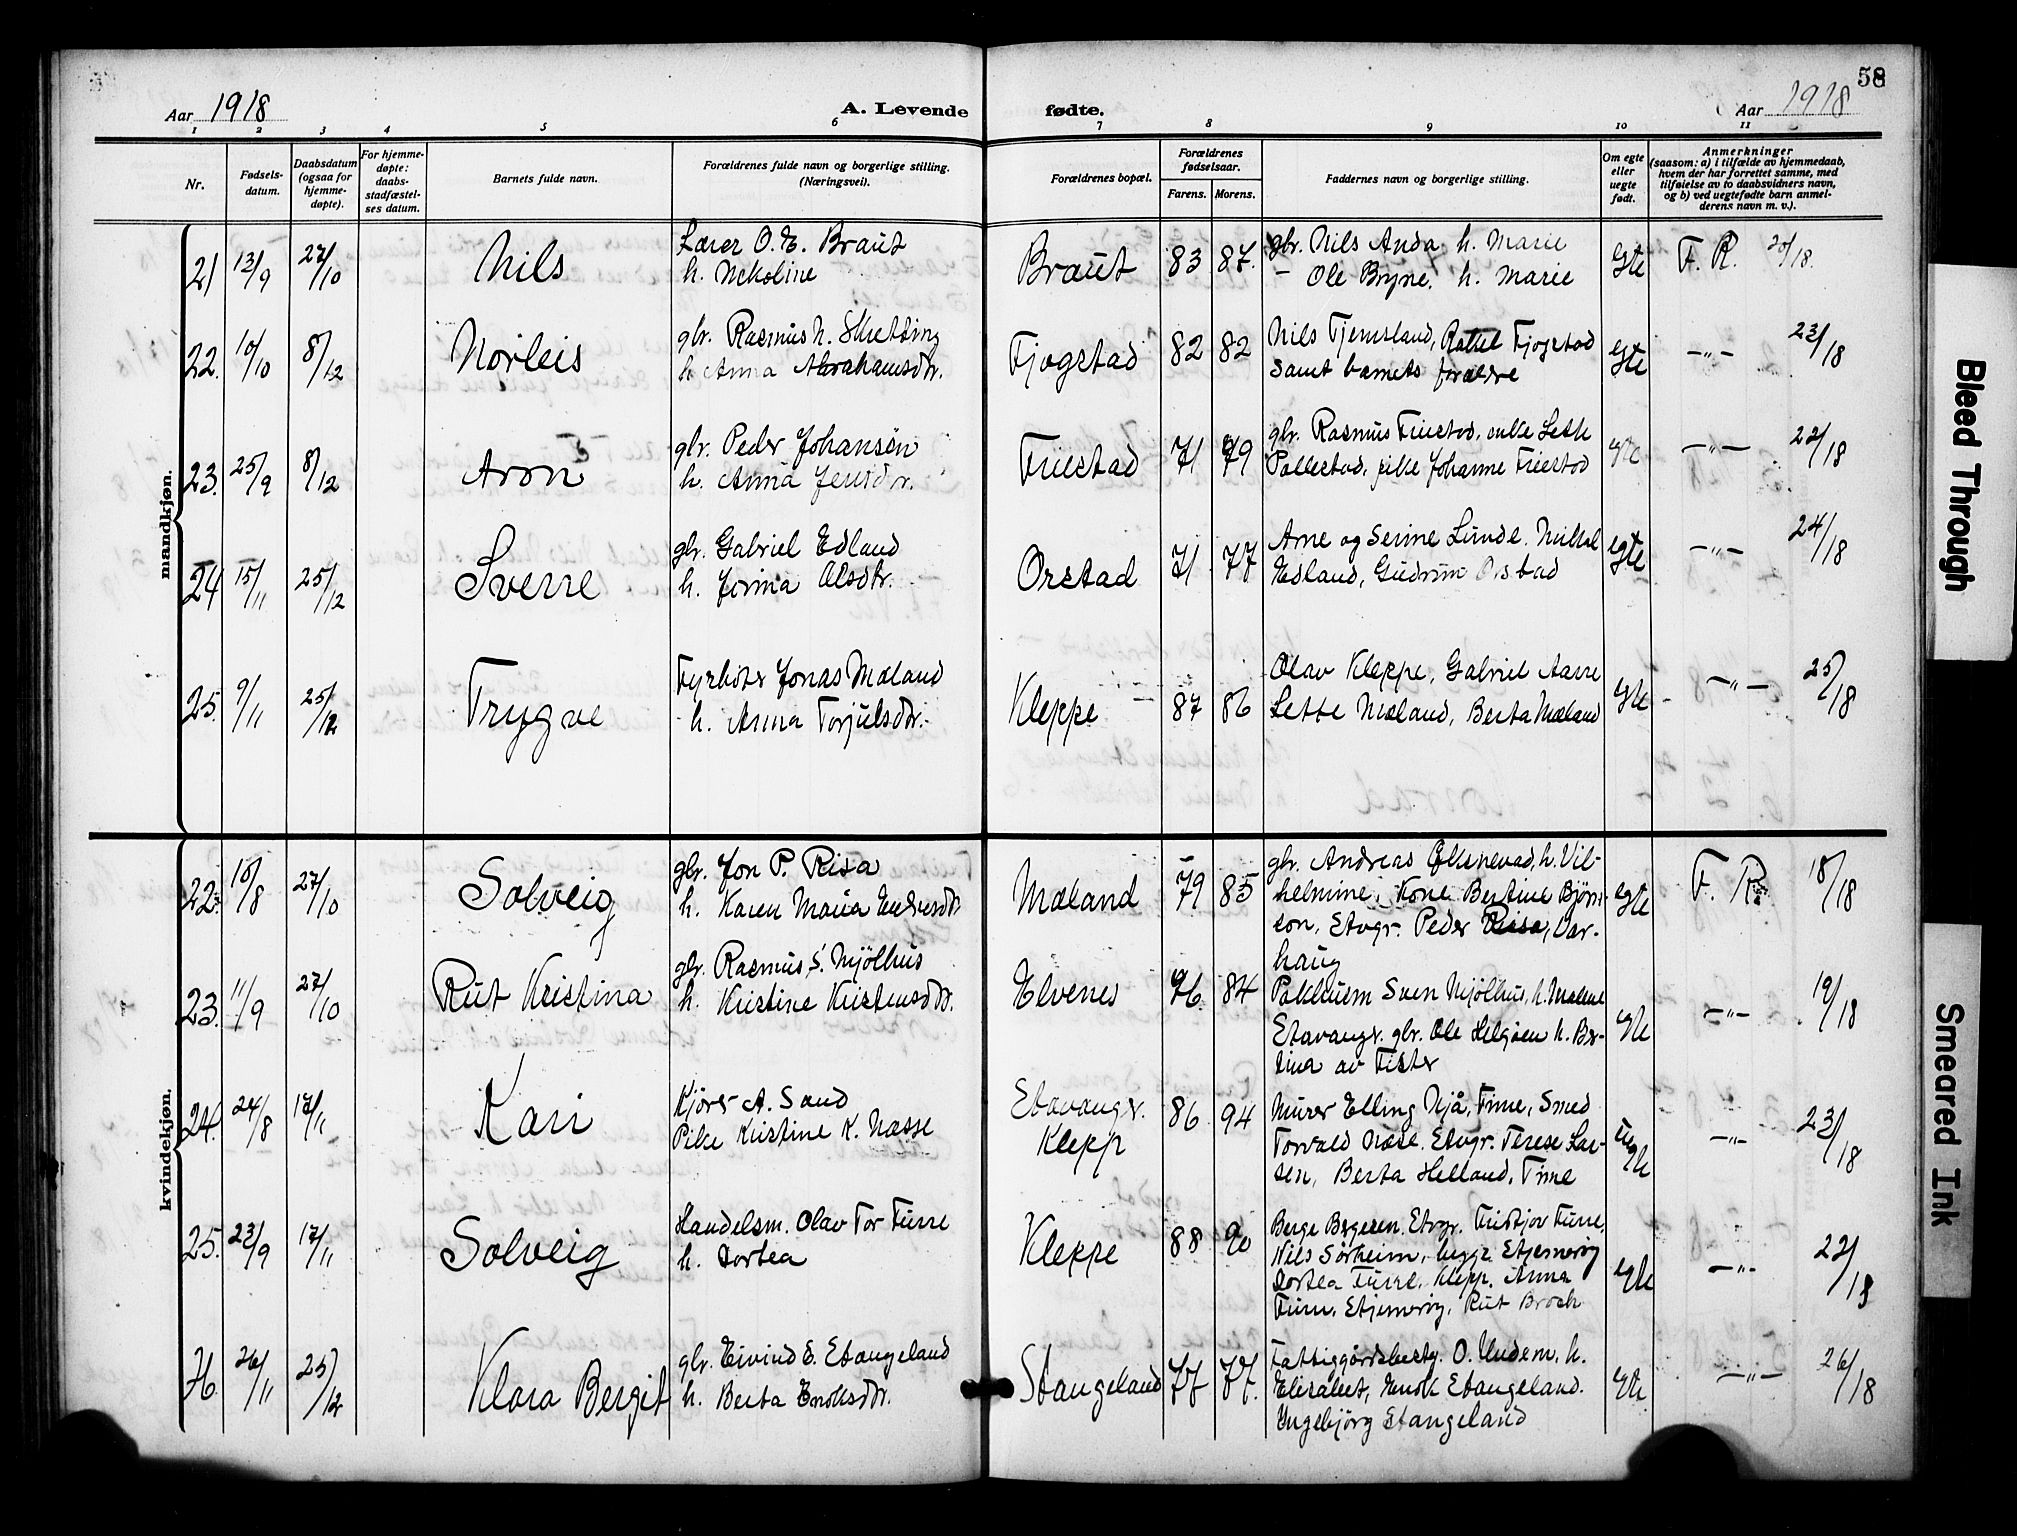 58
Aar 1918
A. Levende fødte.
Aar 1918
1 2 3 4 5 6 7 8 9 10 11
Nr.
Fødsels-
datum.
Daabsdatum
(ogsaa for
hjemme-
døpte).
For hjemme-
døpte:
daabs-
stadfæstel-
ses datum.
Barnets fulde navn.
Forældrenes fulde navn og borgerlige stilling.
(Næringsvei).
Forældrenes bopæl.
Forældrenes
fødselsaar.
Farens. Morens.
Faddernes navn og borgerlige stilling.
Om egte
eller
uegte
født.
Anmerkninger
(saasom: a) i tilfælde av hjemmedaab,
hvem der har forrettet samme, med
tilføielse av to daabsvidners navn,
og b) ved uegtefødte barn anmel-
derens navn m. v.).
mandkjøn.
21 13/9 27/10 Nils
Lærer O. E. Braut
h. Nekoline
Braut 83 87.
gbr. Nils Anda h. Marie
- Ole Bryne, h. Marie
egte F. R. 20/18.
22. 10/10 8/12 Norleif
gbr. Rasmus N. Skretting
h. Anna Abrahamsdtr.
Fjogstad 82 82
Nils Tjemsland, Fjogstad
samt barnets forældre
egte -"- 23/18
23. 25/9 8/12 Aron
gbr. Peder Johansen
h. Anna Jensdtr.
Friestad 71 79
gbr. Rasmus Friestad, enke
Pallestad, pike Johanne Friestad
egte -"- 22/18
24 15/11 25/12 Sverre
gbr. Gabriel Edland
h. Jorina Olsdtr.
Orstad 71 77
Arne og Serine Lunde. Mikal
Edland, Gudrun Orstad
egte -"- 24/18
25. 9/11 25/12 Trygve
Fyrbøter Jonas Mæland
h. Anna Torjulsdtr.
Kleppe 87 86
Olav Kleppe, Gabriel Aarre
Lette Mæland, Berta Mæland
egte -"- 25/18
kvindekjøn.
22. 18/8 27/10 Solveig
gbr. Jon P. Risa
h. Karen Maria Endresdtr
Mæland 79 85
gbr. Andreas Øksnevad, h. Vil-
helmine, Kone Bertine Bjørn-
son, Stvgr. Peder Risa, Var-
haug
egte F. R. 18/18
23. 11/9 27/10 Rut Kristina
gbr. Rasmus S. Mjölhus
h. Kristine Kristensdtr.
Elvenes 76. 84
Pakhusm Sven Mjölhus, h. Malene
Stavanger. gbr. Ole Helgøen h. Ber-
tina av Fister
egte -"- 19/18
24. 24/8 17/11 Kari
Kjører A. Sand
Pike Kristine K. Næsse
Stavanger.
Klepp
86 94
Murer Elling Njå, Time, Smed
Torvald Næse. Stvgr. Terese Lar-
sen, Berta Helland, Time
uegte -"- 23/18
25. 23/9 17/11 Solveig
Handelsm. Olav Tor Furre
h. Dortea
Kleppe 88 90
Berge Bergesen. Stvgr. Fridtjov Furre,
Nils Sörheim, Stjernerøy
Dortea Furre. Klepp. Anna
Furre, Stjernerøy, Rut Broch
egte -"- 22/18
26 26/11 25/12 Klara Bergit
gbr. Eivind E. Stangeland
h. Berta Enoksdtr.
Stangeland 77 77.
Fattiggårdsbesty. O. Undem, h.
Elisabet, Enok Stangeland.
Ingebjörg Stangeland
egte -"- 26/18
Bleed Through
Smeared Ink